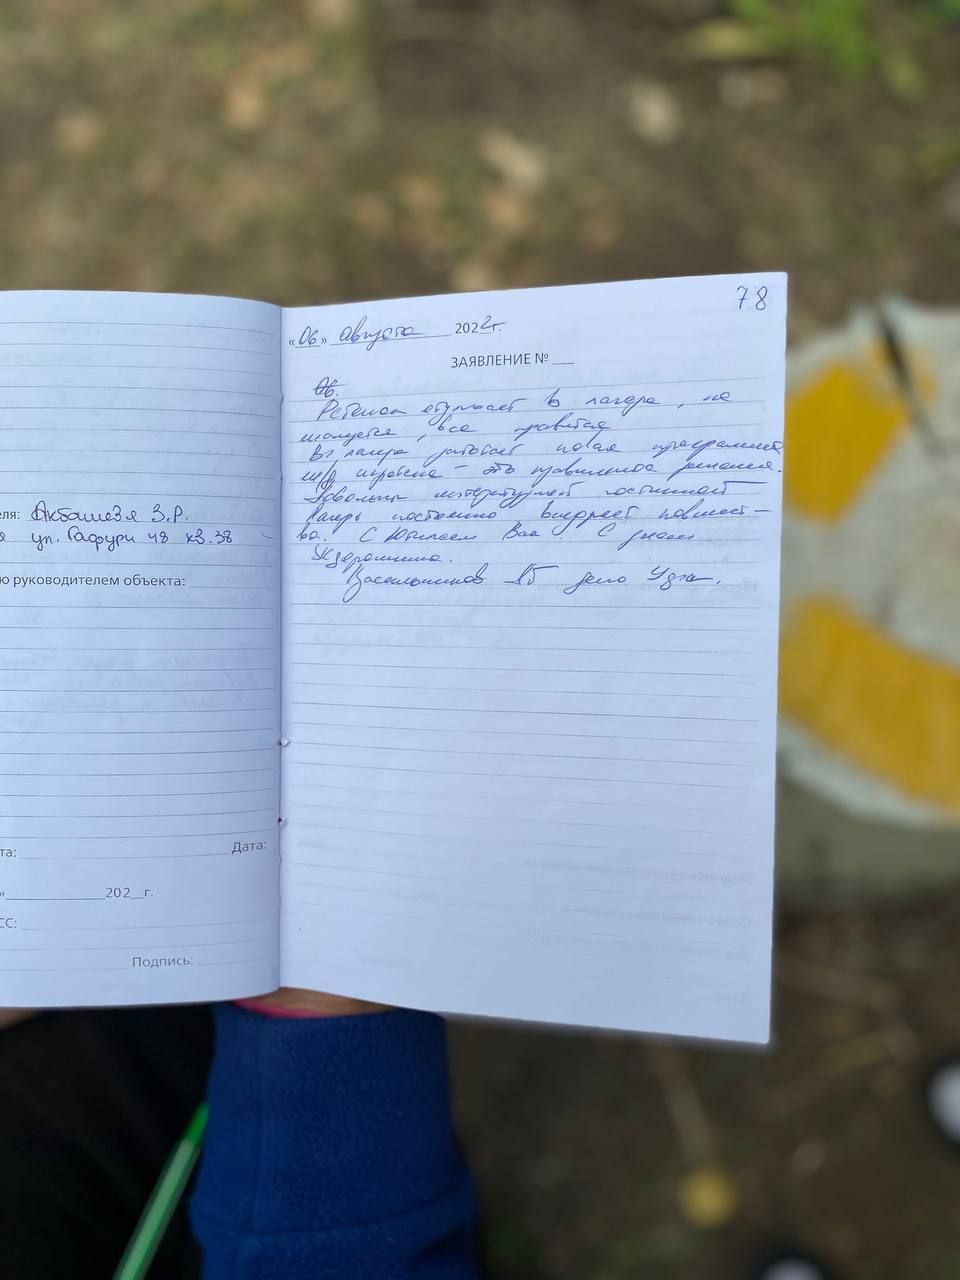 еля: Акбашева З.Р.
я ул. Гафури 48 кв. 38
ю руководителем объекта:
та: Дата:
» 202 г.
СС:
Подпись:
78
«06» августа 2022г.
ЗАЯВЛЕНИЕ №
Об.
Ребенок отдыхает в лагере, не
жалуется, все нравится
В лагере работает новая программа
это правильное решение.
Довольны литературной гостиной
Лагерь постоянно внедряет новшест-
ва. С Юбилеем Вас. С днем